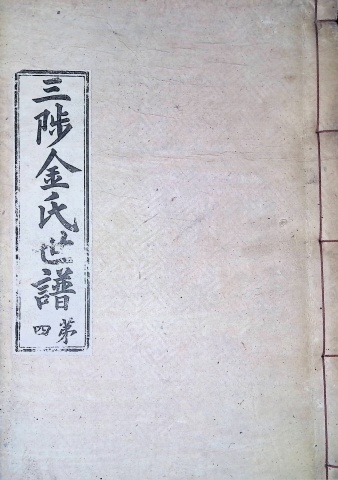 三陟金氏世譜
第四